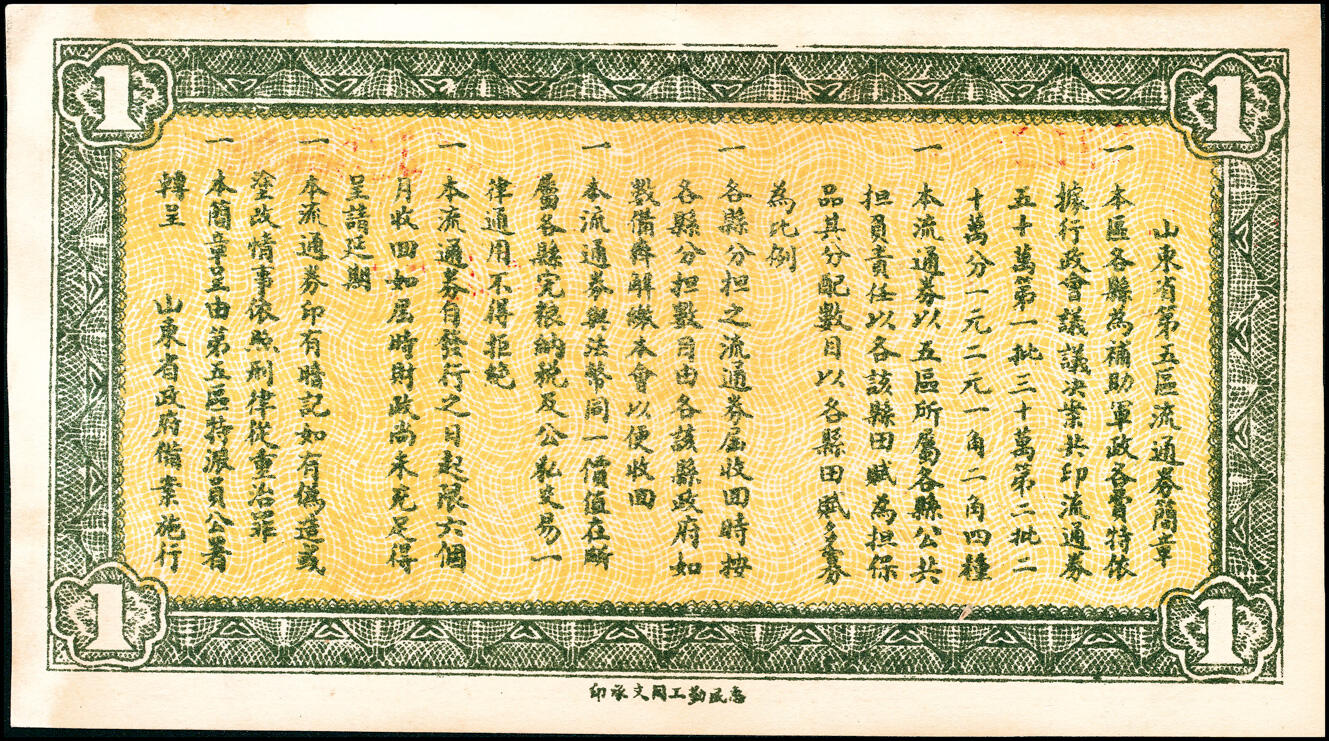 山東省第五區流通券簡章
一 本區各縣為補助軍政各費特依
據行政會議議決案共印流通券
五十萬第一批三十萬第二批二
十萬分一元二元一角二角四種
一 本流通券以五區所屬各縣公共
担負責任以各該縣田賦為担保
品其分配數目以各縣田賦多寡
為比例
一 各縣分担之流通券屆收回時按
各縣分担數目由各該縣政府如
數備齊解繳本會以便收回
一 本流通券與法幣同一價值在所
屬各縣完粮納稅及公私交易一
律通用不得拒絕
一 本流通券自發行之日起限六個
月收回如屆時財政尚未充足得
呈請延期
一 本流通券印有暗記如有偽造或
塗改情事依照刑律從重治罪
一 本簡章呈由第五區特派員公署
轉呈 山東省政府備案施行
1
1
1
1
惠民勤工同文承印